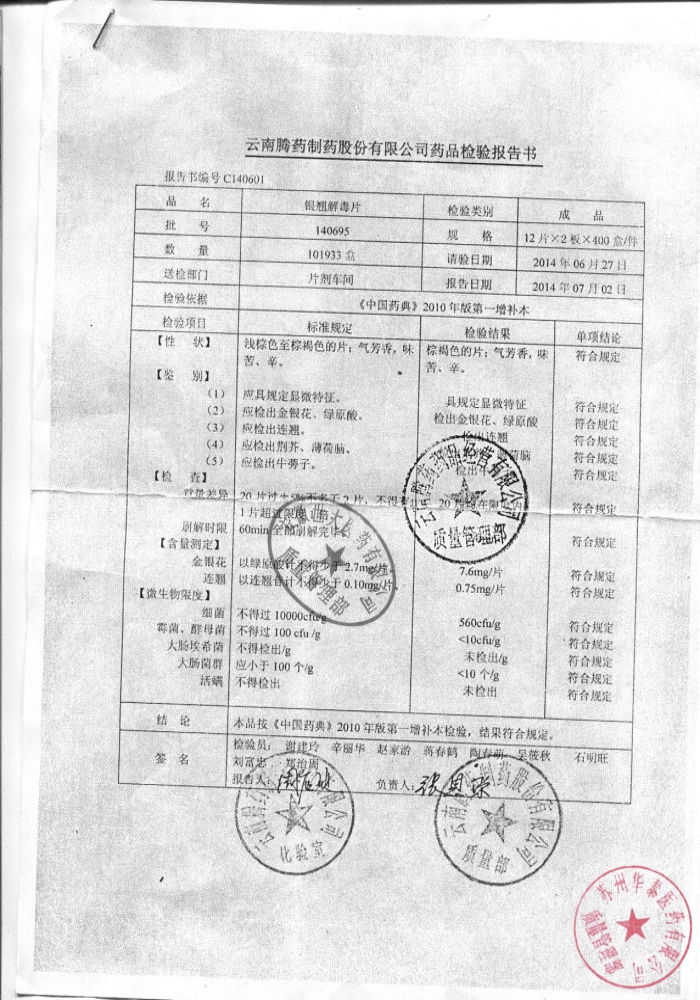 云南腾药制药股份有限公司药品检验报告书
报告书编号 C140601
品 名 银翘解毒片 检验类别 成 品
批 号 140695 规 格 12片×2板×400盒/件
数 量 101933 盒 请验日期 2014年06月27日
送检部门 片剂车间 报告日期 2014年07月02日
检验依据 《中国药典》2010年版第一增补本
检验项目 标准规定 检验结果 单项结论
【性 状】 浅棕色至棕褐色的片；气芳香，味 棕褐色的片；气芳香，味 符合规定
苦、辛。 苦、辛。
【鉴 别】
（1） 应具规定显微特征。 具规定显微特征 符合规定
（2） 应检出金银花、绿原酸。 检出金银花、绿原酸 符合规定
（3） 应检出连翘。 检出连翘 符合规定
（4） 应检出荆芥、薄荷脑。 荷脑 符合规定
（5） 应检出牛蒡子。 检出 符合规定
【检 查】
重量差异 20 片过±5%不多于 2 片，不得有 20 符合规定
1 片超过限度 1 倍。
崩解时限 60min 全部崩解完 符合规定
【含量测定】
金银花 以绿原酸计不得少于 2.7mg/片。 7.6mg/片 符合规定
连翘 以连翘苷计不得少于 0.10mg/片 0.75mg/片 符合规定
【微生物限度】
细菌 不得过 10000cfu/g 560cfu/g 符合规定
霉菌、酵母菌 不得过 100 cfu /g <10cfu/g 符合规定
大肠埃希菌 不得检出/g 未检出/g 符合规定
大肠菌群 应小于 100 个/g <10 个/g 符合规定
活螨 不得检出 未检出 符合规定
结 论 本品按《中国药典》2010 年版第一增补本检验，结果符合规定。
签 名 检验员： 谢建玲 辛丽华 赵家游 蒋春鹤 陶春萌 吴筱秋 石明旺
刘富忠 郑治周
报告人： 负责人：
云南腾药药品经营有限公司
质量管理部
医药有限公司
质量管理部
化验室
云南腾药制药股份有限公司
质量部
苏州华泰医药有限公司
质量管理部